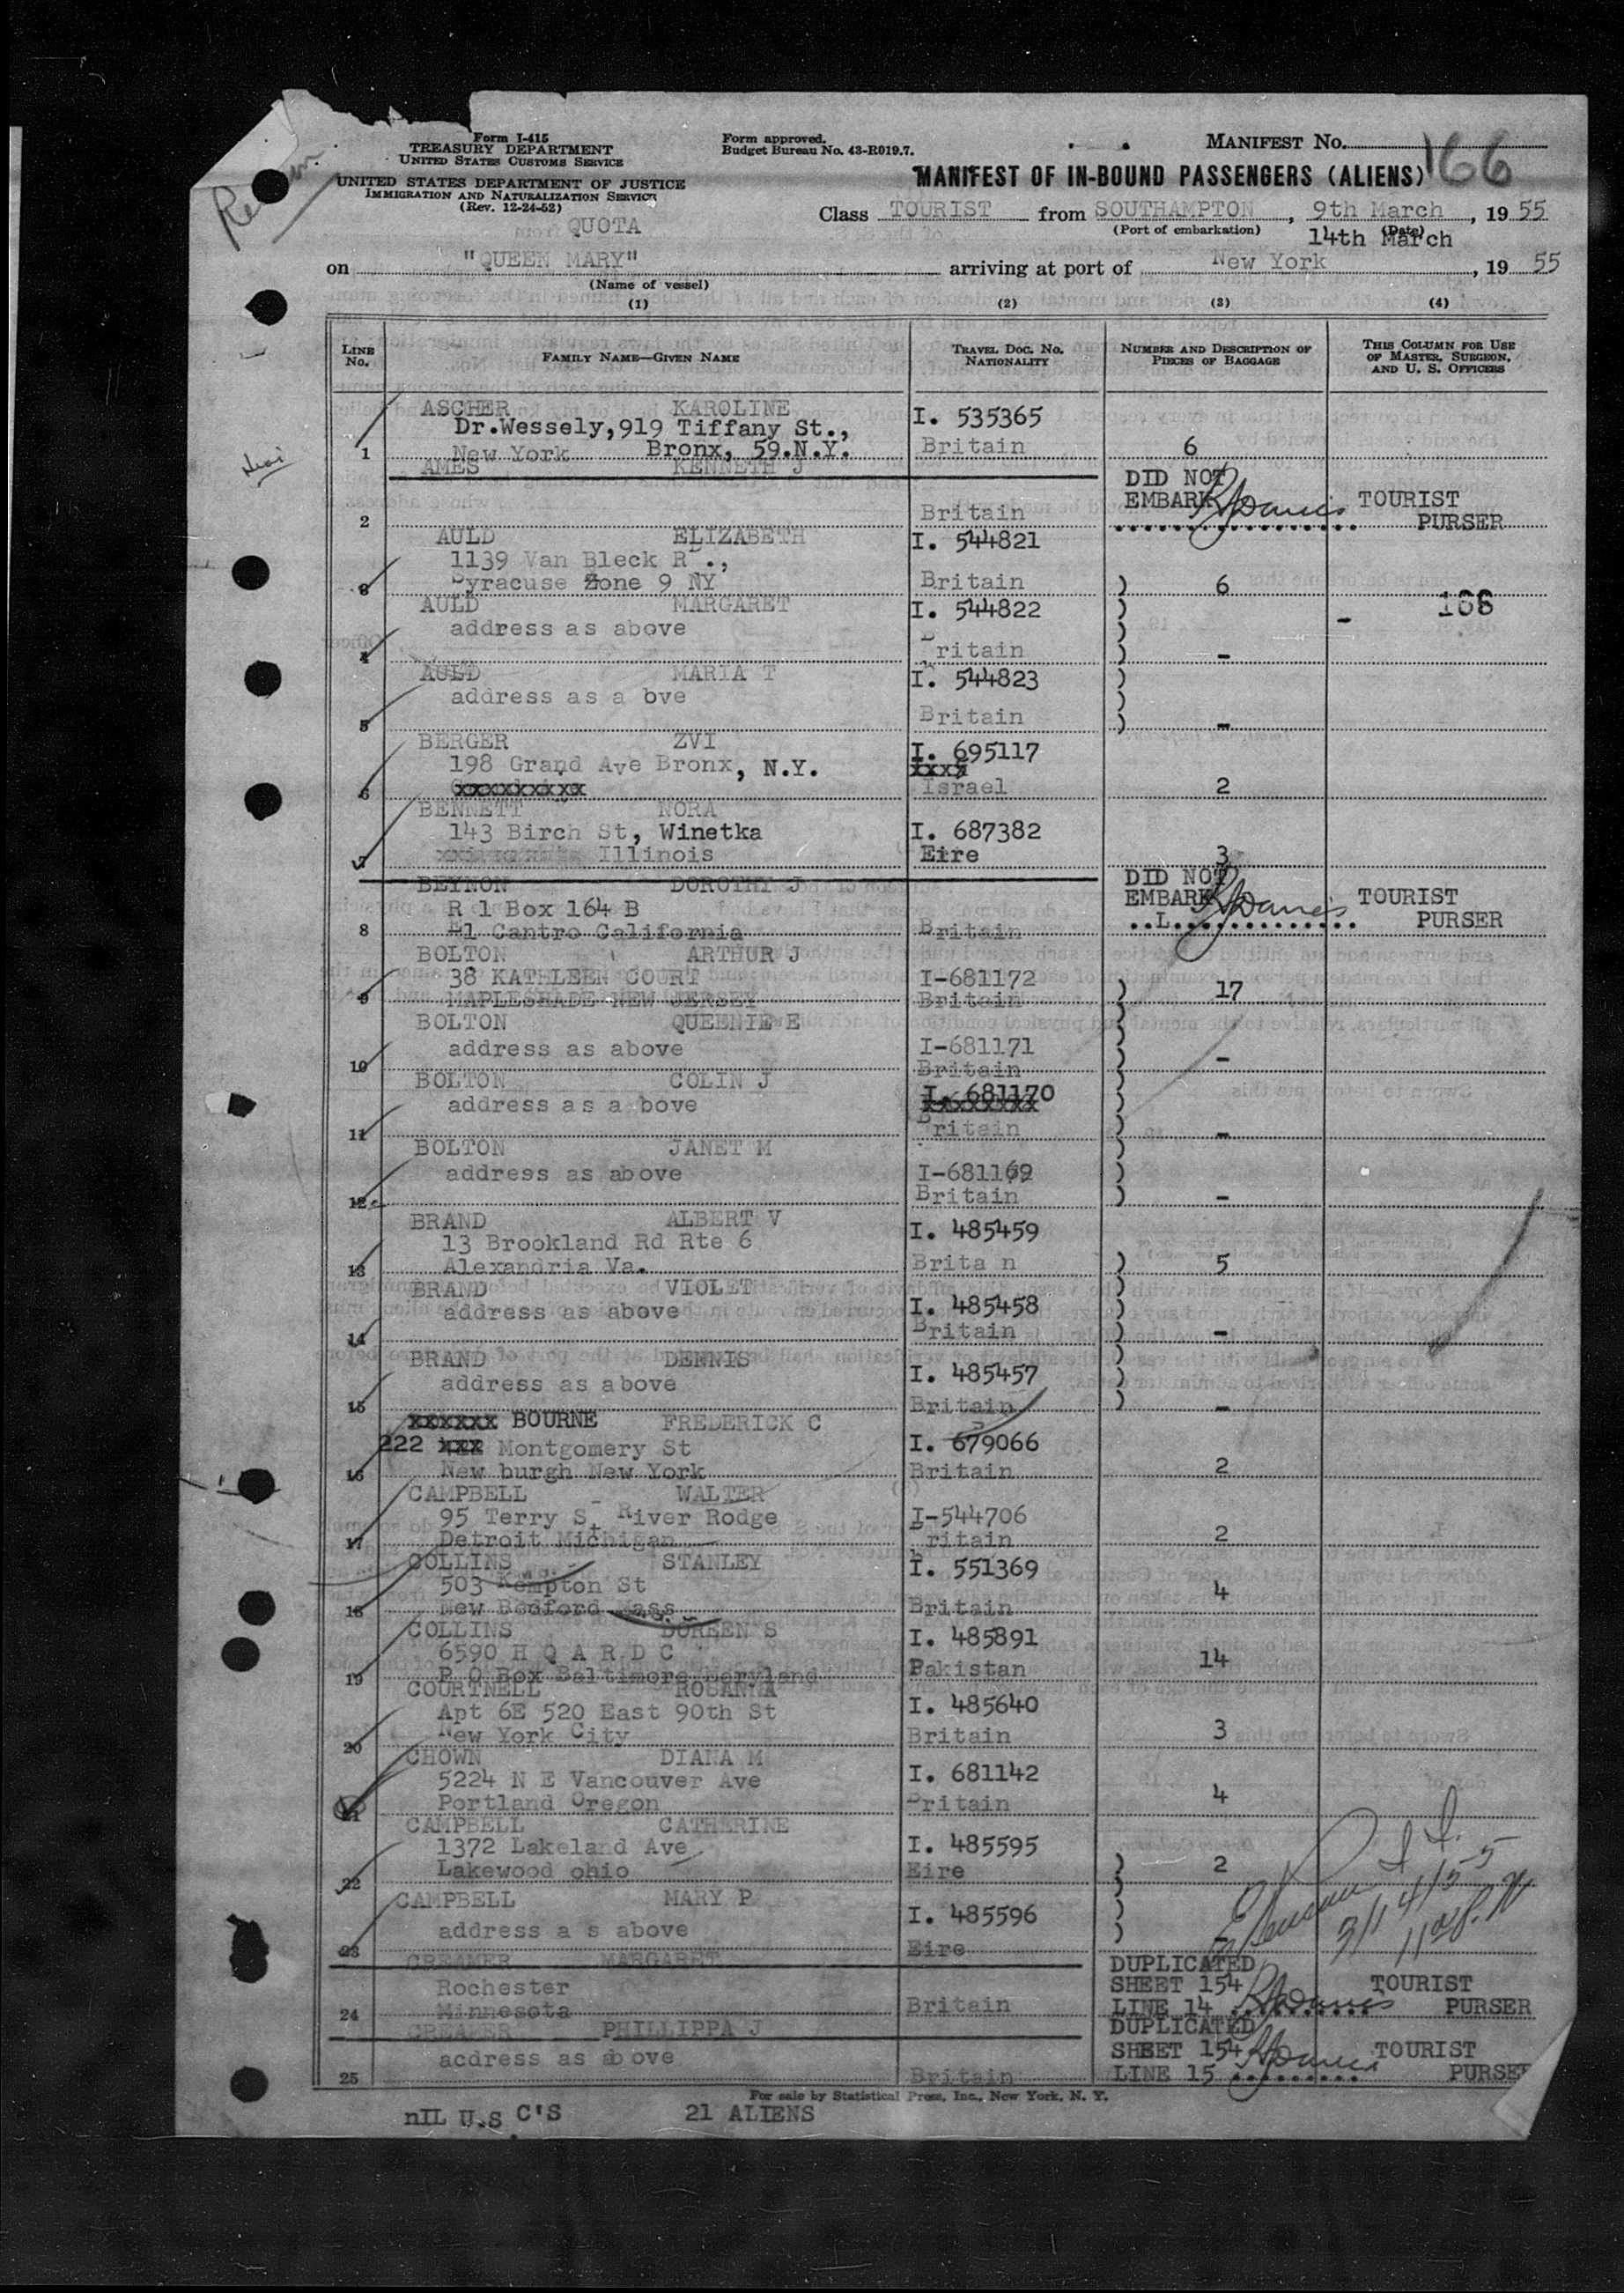 Form I-415
TREASURY DEPARTMENT
UNITED STATES CUSTOMS SERVICE
UNITED STATES DEPARTMENT OF JUSTICE
IMMIGRATION AND NATURALIZATION SERVICE
(Rev. 12-24-52)
Form approved.
Budget Bureau No. 43-R019.7.
MANIFEST No. 166
MANIFEST OF IN-BOUND PASSENGERS (ALIENS)
Class TOURIST from SOUTHAMPTON, 9th March, 1955
(Port of embarkation) (Date)
QUOTA 14th March
on "QUEEN MARY" arriving at port of New York, 1955
(Name of vessel)
(1) (2) (3) (4)
LINE No. FAMILY NAME—GIVEN NAME TRAVEL DOC. No. NATIONALITY NUMBER AND DESCRIPTION OF PIECES OF BAGGAGE THIS COLUMN FOR USE OF MASTER, SURGEON, AND U. S. OFFICERS
ASCHER KAROLINE I. 535365
Dr.Wessely,919 Tiffany St.,
1 New York Bronx, 59.N.Y. Britain 6
AMES KENNETH J DID NOT
EMBARK TOURIST
2 Britain PURSER
AULD ELIZABETH I. 544821
1139 Van Bleck R .,
3 Syracuse Zone 9 NY Britain ) 6
AULD MARGARET I. 544822 ) 166
address as above ) -
4 Britain ) -
AULD MARIA T I. 544823 )
address as a bve )
5 Britain ) -
BERGER ZVI I. 695117
198 Grand Ave Bronx, N.Y. xxxx
6 xxxxxxxxx Israel 2
BENNETT NORA
143 Birch St, Winetka I. 687382
7 Illinois Eire 3
BEYNON DOROTHY J DID NOT
R 1 Box 164 B EMBARK TOURIST
8 El Cantro California Britain ..L.. PURSER
BOLTON ARTHUR J
38 KATHLEEN COURT I-681172
9 MAPLESHADE NEW JERSEY Britain ) 17
BOLTON QUEENIE E )
address as above I-681171 )
10 Britain ) -
BOLTON COLIN J I. 681170 )
address as a bove xxxxxxxx )
11 Britain ) -
BOLTON JANET M )
address as above I-681169 )
12 Britain ) -
BRAND ALBERT V I. 485459
13 Brookland Rd Rte 6
13 Alexandria Va. Brita n ) 5
BRAND VIOLET )
address as above I. 485458 )
14 Britain ) -
BRAND DENNIS )
address as above I. 485457 )
15 Britain ) -
xxxxxx BOURNE FREDERICK C
222 xxx Montgomery St I. 679066
16 New burgh New York Britain 2
CAMPBELL WALTER
95 Terry St River Rodge I-544706
17 Detroit Michigan Britain 2
COLLINS STANLEY I. 551369
503 Kempton St
18 New Bedford Mass Britain 4
COLLINS DOREEN S I. 485891
6590 H Q A R D C
19 P O Box Baltimore Maryland Pakistan 14
COURTNELL ROSANNA I. 485640
Apt 6E 520 East 90th St
20 New York City Britain 3
CHOWN DIANA M
5224 N E Vancouver Ave I. 681142
21 Portland Oregon Britain 4
CAMPBELL CATHERINE
1372 Lakeland Ave I. 485595
22 Lakewood ohio Eire ) 2
CAMPBELL MARY P )
address a s above I. 485596 )
23 Eire ) -
CREAMER MARGARET DUPLICATED
Rochester SHEET 154 TOURIST
24 Minnesota Britain LINE 14 PURSER
CREAMER PHILLIPPA J DUPLICATED
acdress as above SHEET 154 TOURIST
25 Britain LINE 15 PURSER
For sale by Statistical Press, Inc., New York, N. Y.
nIL U.S C'S 21 ALIENS